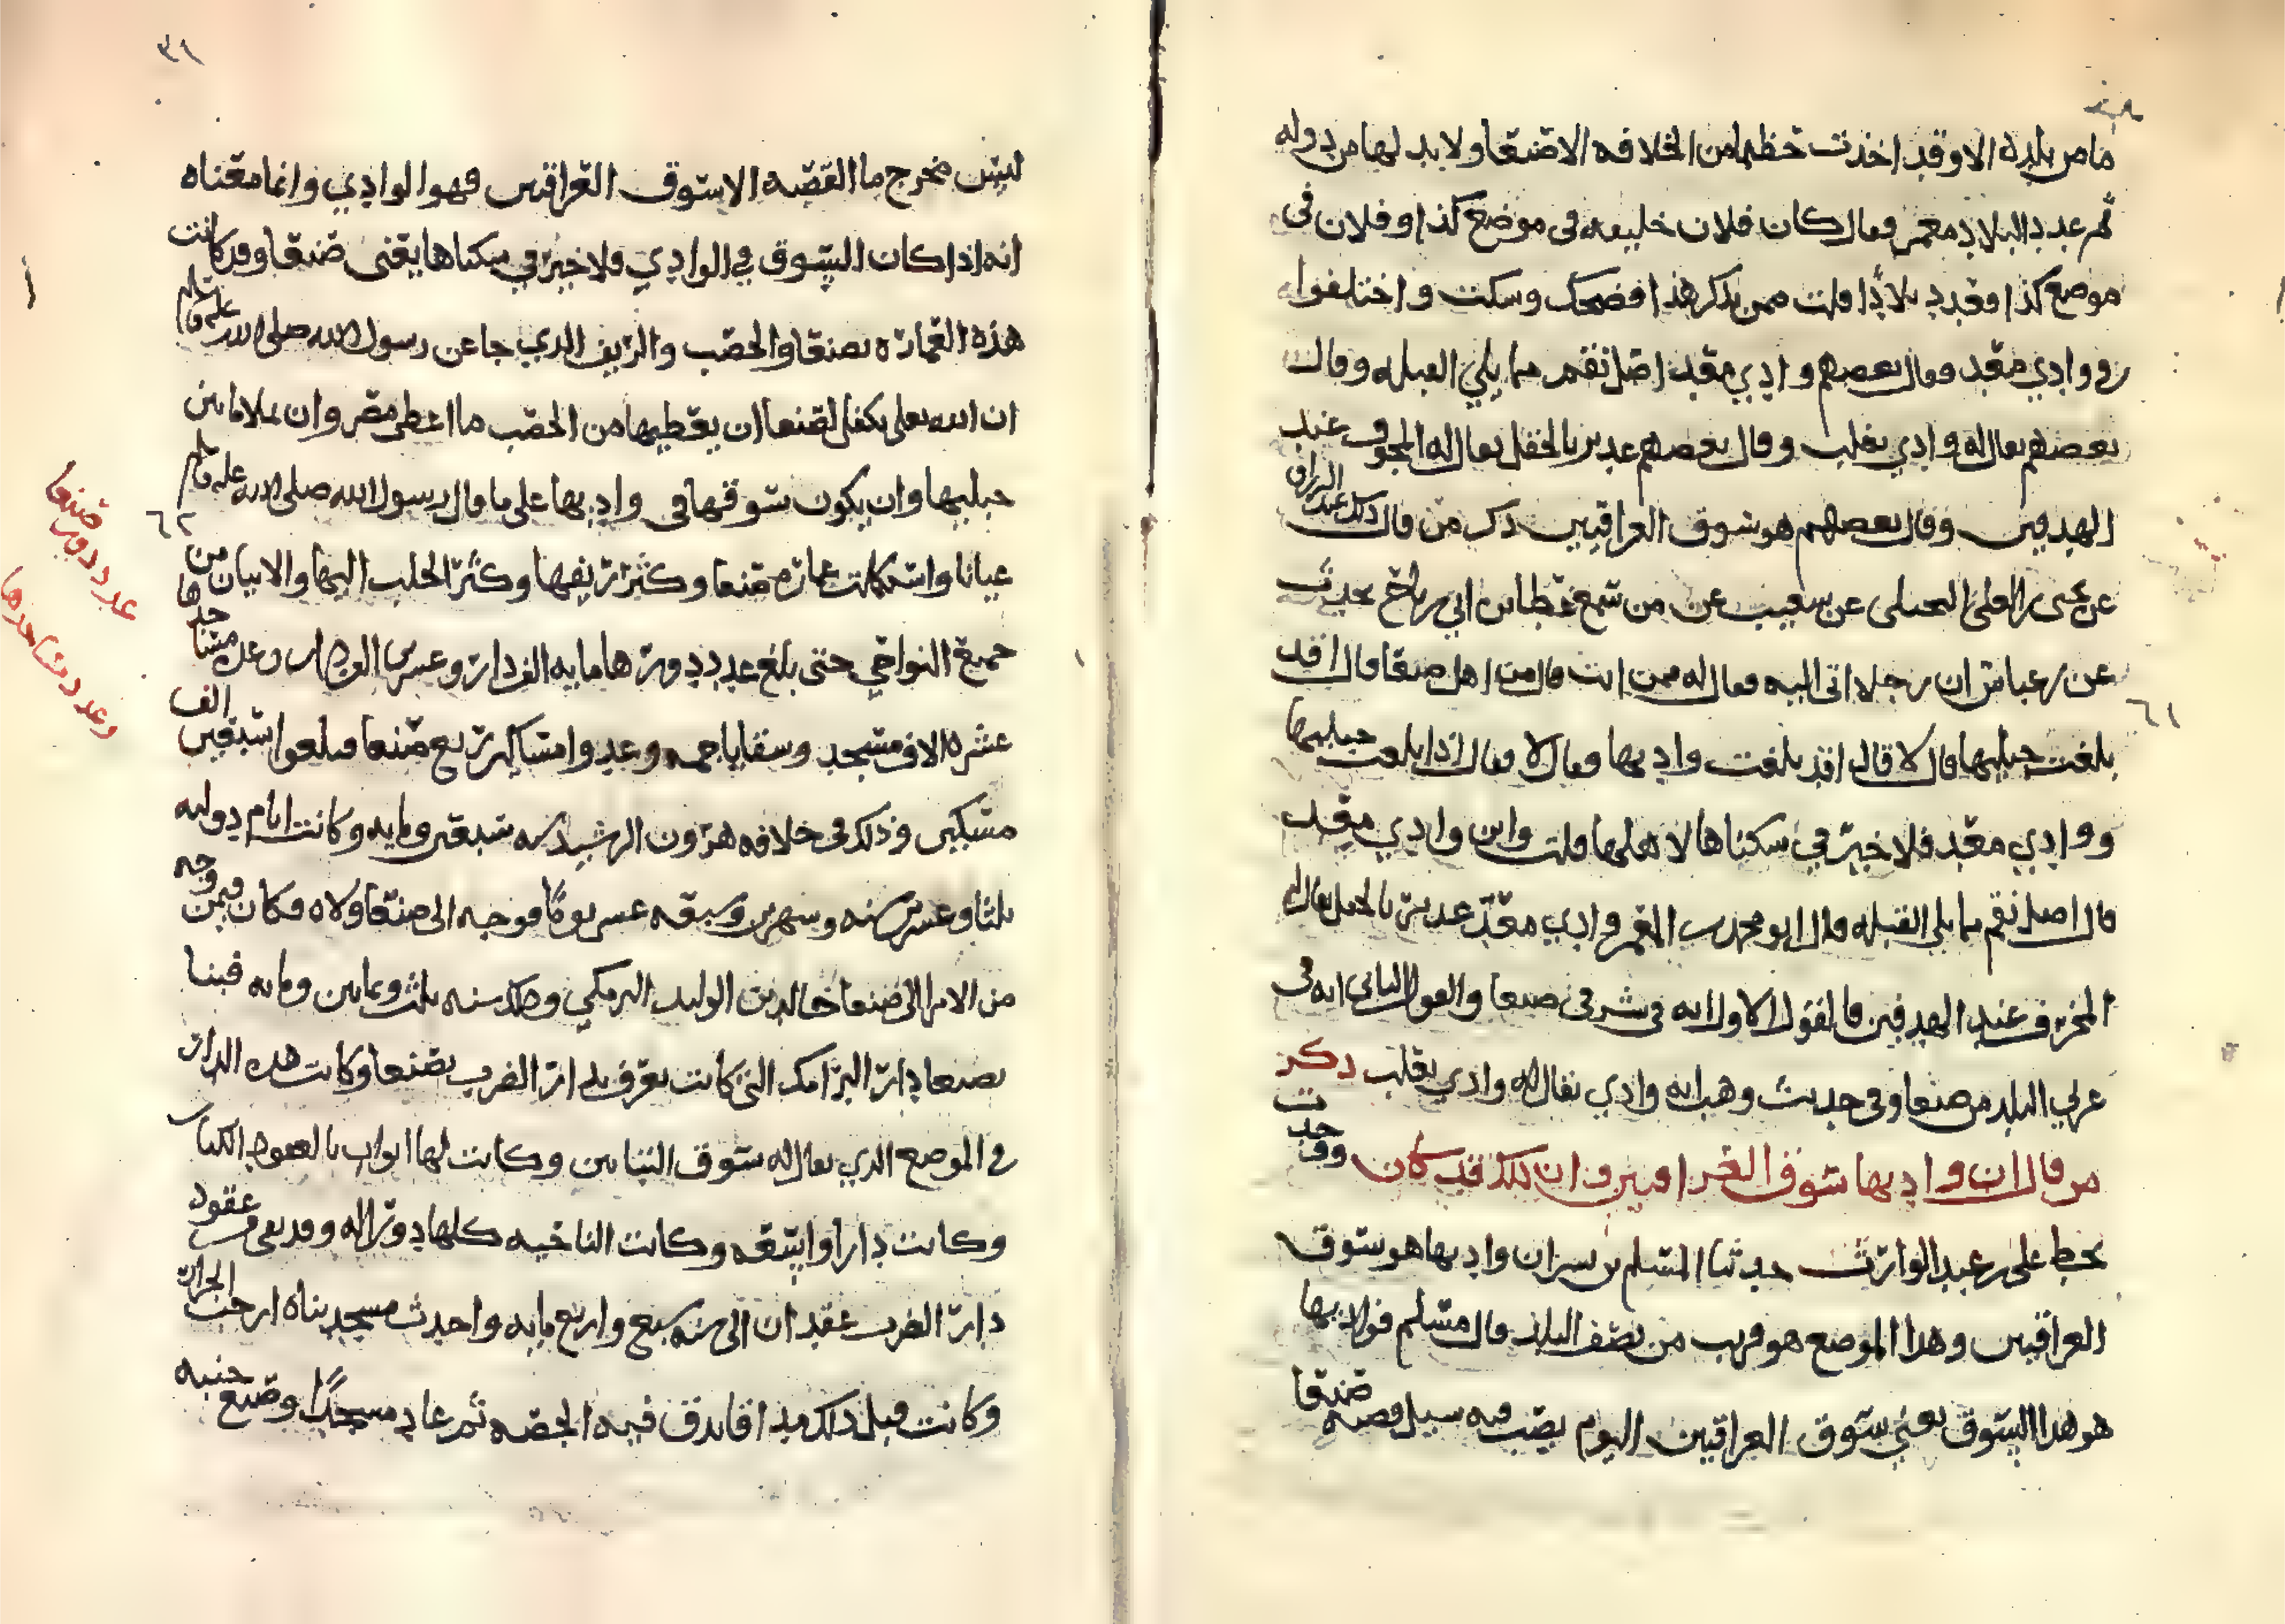 ما من بلده الا وقد اخذت حظها من الخلافه الا صنعا ولا بد لها من دوله
ثم عدد البلاد معمر وقال كان فلان خليفه في موضع كذا وفلان في
موضع كذا فعدد بلادًا قلت ممن يذكر هذا فضحك وسكت واختلفوا
في وادي معبد فقال بعضهم وادي معبد اصل نقم مما يلي القبله وقال
بعضهم يقال له وادي تغلب وقال بعضهم غدير بالحقل يقال له المجوف عند
الهدفين وقال بعضهم هو سوق العراقيين ذكر من قال ذلك عبد الرزاق
عن يحيى بن العلى البجلي عن شعيب عن من سمع عطا بن ابي رباح يحدث
عن بن عباس ان رجلا اتى اليه فقال له ممن انت قال من اهل صنعا قال اقد
بلغت جبليها قال لا قال اقد بلغت واديها وقال لا قال اذا بلغت جبليها
٦١
ووادي معبد فلا خير في سكناها لاهلها قلت واين وادي معبد
قال اصل نقم مما يلي القبله قال ابو محمد بن المعمر وادي معبد غدير بالحقل يقال له
المجرف عند الهدفين فالقول الاول انه في شرقي صنعا والقول الثاني انه في
غربي البلد من صنعا وفي حديث وهب انه وادي يقال له وادي تغلب ذكر
من قال ان واديها سوق العراقيين وان ذلك قد كان ووجدت
بخط علي بن عبد الوارث حدثنا المسلم بن بسر ان واديها هو سوق
العراقيين وهذا الموضع هو قريب من نصف البلد قال مسلم فواديها
هو هذا السوق يعني سوق العراقيين اليوم يصب فيه سيل قصبة صنعا
٣١
ليس مخرج ما القصبه الا سوق العراقيين فهو الوادي وانما معناه
انه اذا كان السوق في الوادي فلا خير في سكناها يعني صنعا وقد كانت
هذه العماره بصنعا والخصب والريف الذي جا عن رسول الله صلى الله عليه وسلم قال
ان الله تعلى تكفل لصنعا ان يعطيها من الخصب ما اعطى مصر وان يملا ما بين
جبليها وان يكون سوقها في واديها على ما قال رسول الله صلى الله عليه وسلم
٦٢
عدد دور صنعا
وعدد مساجدها
عيانا واستكملت عمارة صنعا وكثر ريفها وكثر الجلب اليها والاتيان من
جميع النواحي حتى بلغ عدد دورها مايه الف دار وعشرين الف دار وعدد مساجدها
عشره الاف مسجد وسقايا جمه وعدوا مساكن ربع صنعا فبلغوا سبعين الف
مسكين وذلك في خلافه هرون الرشيد سنه سبعين ومايه وكانت ايام دولته
ثلثا وعشرين سنه وشهرين وسبعه عشر يومًا فوجه الى صنعا ولاه فكان فيمن وجه
من الامرا الى صنعا خالد بن الوليد البرمكي وذلك سنه ثلث وثمانين ومايه فبنا
بصنعا دار البرامك التي كانت تعرف بدار الضرب بصنعا وكانت هذه الدار
في الموضع الذي يقال له سوق التبانين وكانت لها ابواب بالعقود الكبار
وكانت دارا واسعه وكانت الناحيه كلها دورا له وقد بقي من عقود
دار الضرب عقدان الى سنه سبع واربع مايه واحدث مسجد بناه ارحب الجزار
وكانت قبل ذلك مدافا يدق فيه الجصه ثم عاد مسجدًا وصنع جنبه